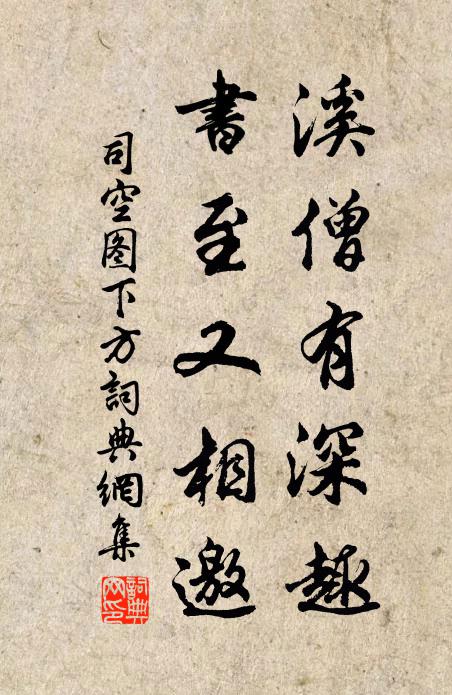 溪僧有深趣
書至又相邀
司空图下方詞典網集
詞典网印